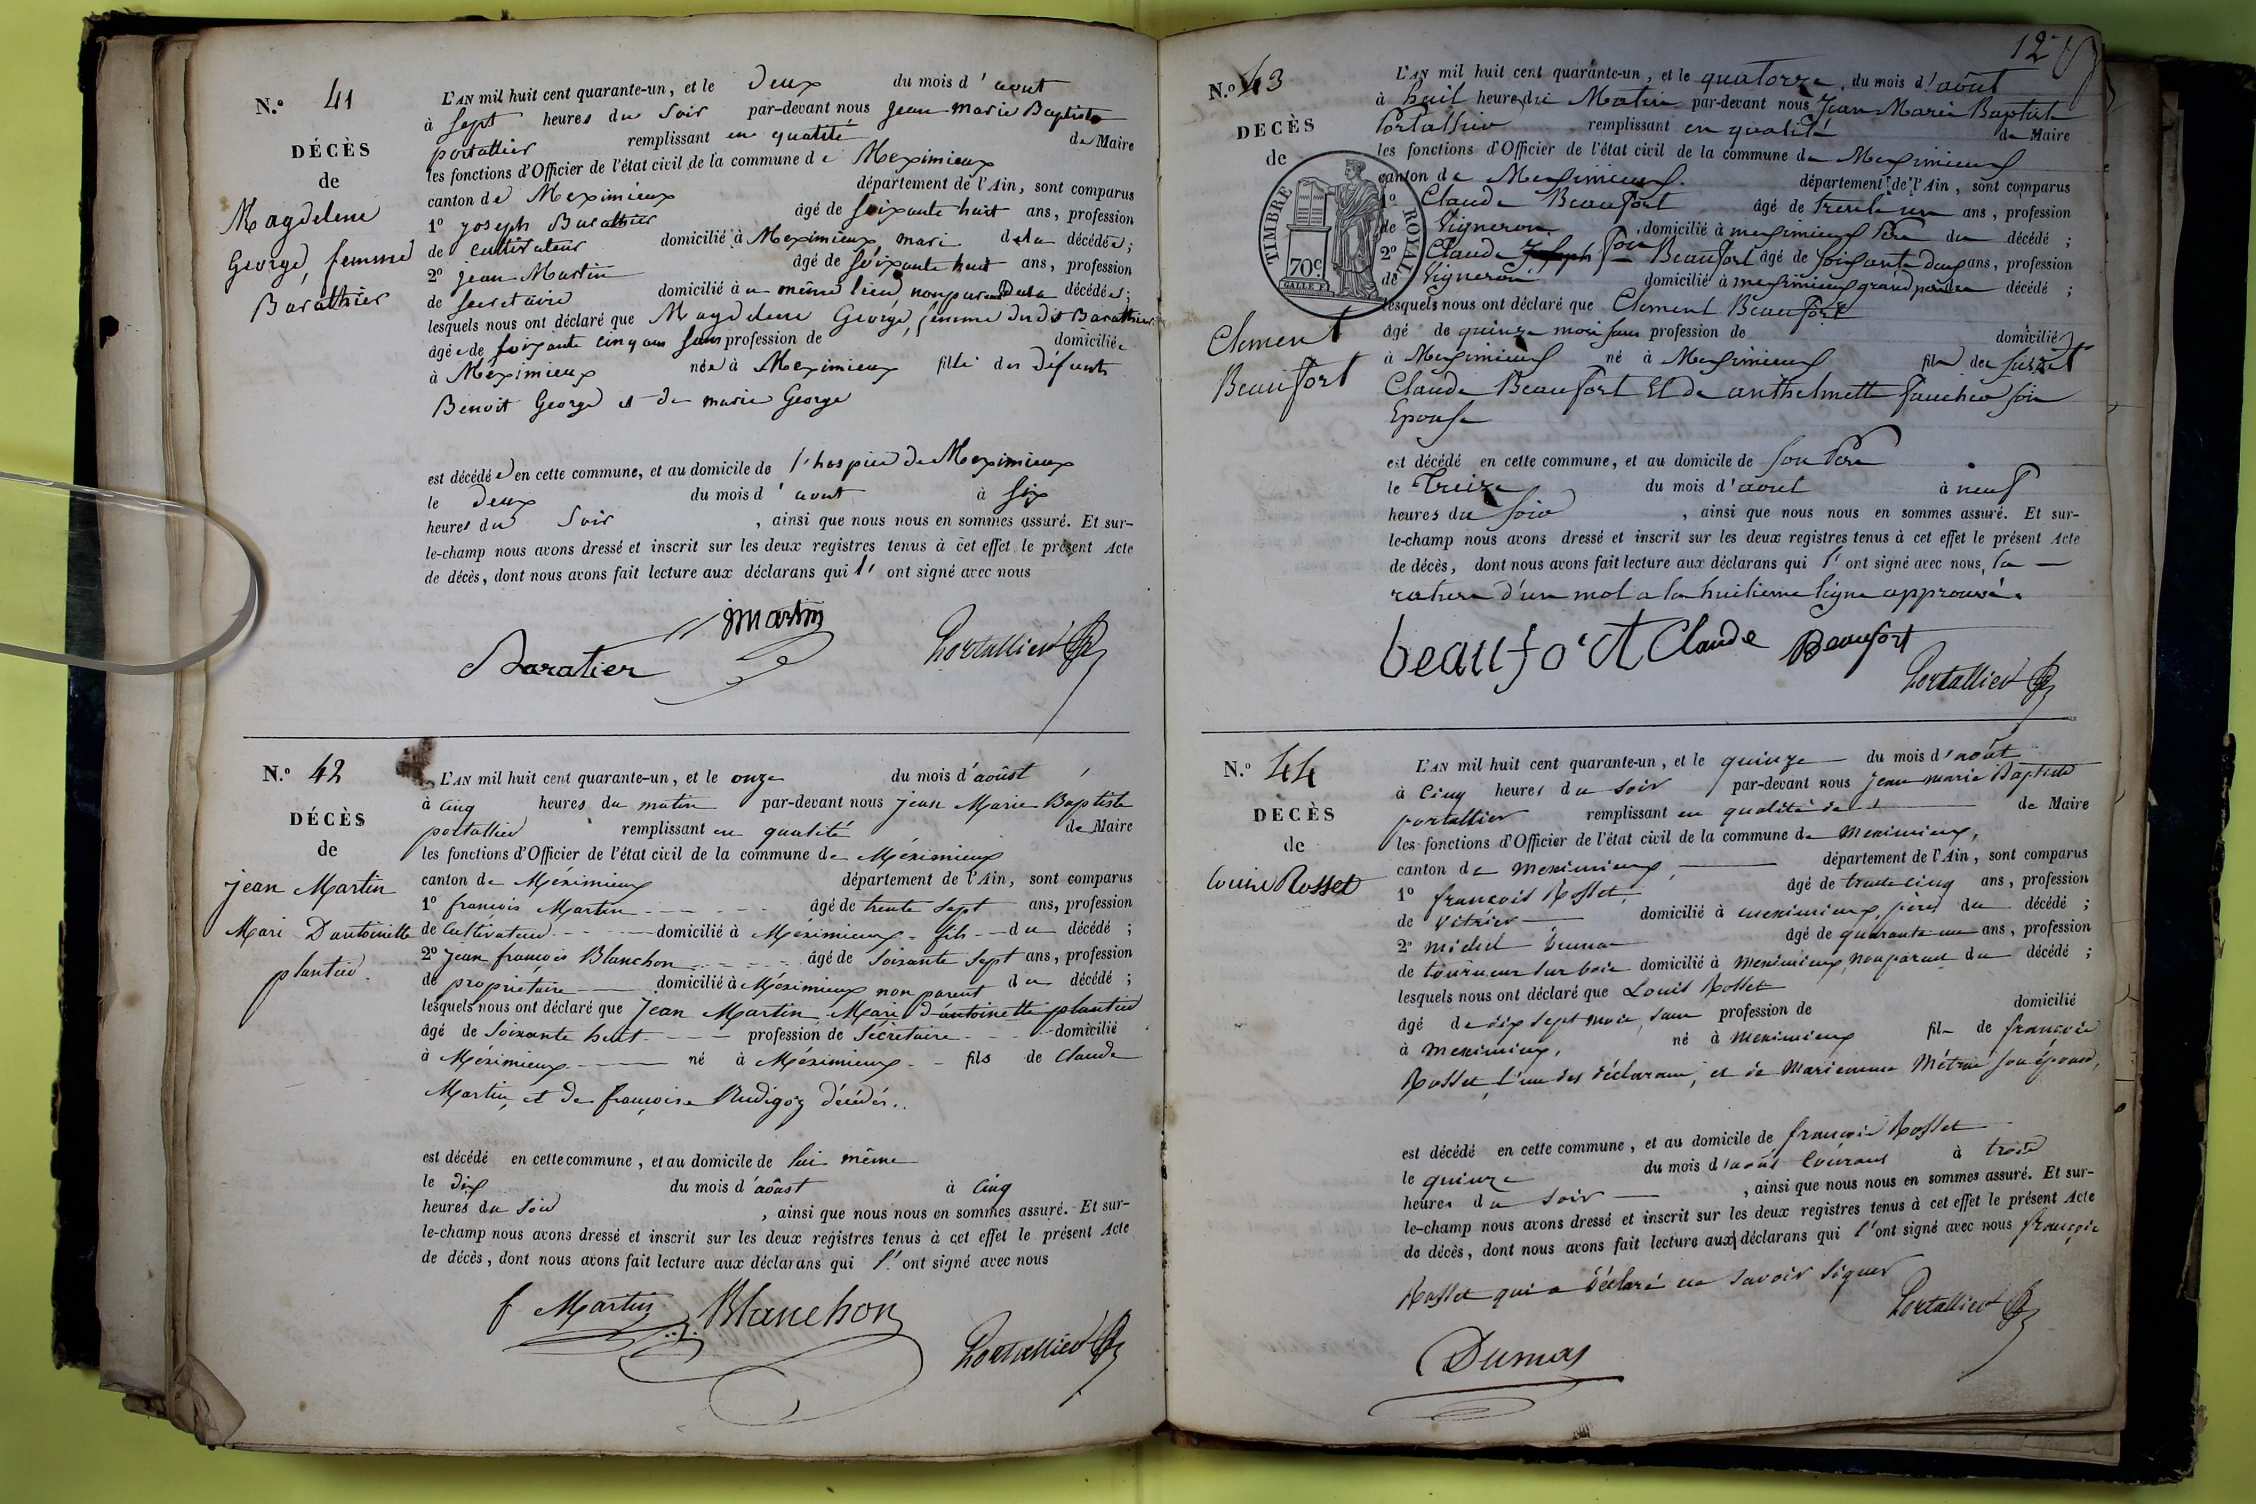 N.º 41
DÉCÈS
de
Magdelene
George, femme
Barathier
L'AN mil huit cent quarante-un, et le deux du mois d'aout
à Sept heures du Soir par-devant nous Jean Marie Baptiste
portallier remplissant en qualité de Maire
les fonctions d'Officier de l'état civil de la commune de Meximieux
canton de Meximieux département de l'Ain, sont comparus
1º Joseph Barathier âgé de soixante huit ans, profession
de cultivateur domicilié à Meximieux, mari de la décédée;
2º Jean Martin âgé de soixante huit ans, profession
de secretaire domicilié à u même lieu, non parent de la décédée;
lesquels nous ont déclaré que Magdelene George, femme du dit Barathier
âgée de soixante cinq ans sans profession de domiciliée
à Meximieux née à Meximieux fille des défunts
Benoit George et de marie George
est décédée en cette commune, et au domicile de l'hospice de Meximieux
le deux du mois d'aout à six
heures du Soir, ainsi que nous nous en sommes assuré. Et sur-
le-champ nous avons dressé et inscrit sur les deux registres tenus à cet effet le présent Acte
de décès, dont nous avons fait lecture aux déclarans qui l'ont signé avec nous
jmartin
Baratier
Portallier
N.º 42
DÉCÈS
de
jean Martin
Mari D'antoinette
plantier.
L'AN mil huit cent quarante-un, et le onze du mois d'aoûst
à cinq heures du matin par-devant nous jean Marie Baptiste
portallier remplissant en qualité de Maire
les fonctions d'Officier de l'état civil de la commune de Méximieux
canton de Méximieux département de l'Ain, sont comparus
1º francois Martin âgé de trente sept ans, profession
de Cultivateur domicilié à Méximieux fils du décédé;
2º Jean françois Blanchon âgé de Soixante Sept ans, profession
de propriétaire domicilié à Méximieux non parent du décédé;
lesquels nous ont déclaré que Jean Martin Mari D'antoinette plantier
âgé de Soixante huit profession de Sécretaire domicilié
à Méximieux né à Méximieux fils de Claude
Martin, et de françoise Rudigoz décédés..
est décédé en cette commune, et au domicile de lui même
le dix du mois d'aoûst à cinq
heures du Soir, ainsi que nous nous en sommes assuré. Et sur-
le-champ nous avons dressé et inscrit sur les deux registres tenus à cet effet le présent Acte
de décès, dont nous avons fait lecture aux déclarans qui l'ont signé avec nous
f Martin Blanchon
Portallier
12
N.º 43
DECÈS
de
TIMBRE ROYAL
70c
Clement
Beaufort
L'AN mil huit cent quarante-un, et le quatorze du mois d'août
à huit heures du Matin par-devant nous Jean Marie Baptiste
Portallier remplissant en qualité de Maire
les fonctions d'Officier de l'état civil de la commune de Meximieux
canton de Meximieux. département de l'Ain, sont comparus
1º Claude Beaufort âgé de trente un ans, profession
de Vigneron domicilié à meximieux Père du décédé;
2º Claude Joseph Beaufort âgé de soixante deux ans, profession
de Vigneron domicilié à meximieux grand père du décédé;
lesquels nous ont déclaré que Clement Beaufort
âgé de quinze mois sans profession de domicilié
à Meximieux né à Meximieux fils de susdit
Claude Beaufort Et de anthelmette faucheu son
Epouse
est décédé en cette commune, et au domicile de son Père
le Treize du mois d'aout à neuf
heures du soir, ainsi que nous nous en sommes assuré. Et sur-
le-champ nous avons dressé et inscrit sur les deux registres tenus à cet effet le présent Acte
de décès, dont nous avons fait lecture aux déclarans qui l'ont signé avec nous, la
rature d'un mot a la huitieme ligne approuvé.
beaufort Claude Beaufort
Portallier
N.º 44
DECÈS
de
Louis Rosset
L'AN mil huit cent quarante-un, et le quinze du mois d'août
à Cinq heures du soir par-devant nous jean marie Baptiste
portallier remplissant en qualité de de Maire
les fonctions d'Officier de l'état civil de la commune de meximieux,
canton de meximieux, département de l'Ain, sont comparus
1º francois Rosset, âgé de trente cinq ans, profession
de Vitrier domicilié à meximieux, père du décédé;
2º michel Dumas âgé de quarante un ans, profession
de tourneur sur bois domicilié à meximieux, non parent du décédé;
lesquels nous ont déclaré que Louis Rosset
âgé de dix sept mois, sans profession de domicilié
à meximieux, né à meximieux fils de francois
Rosset, l'un des déclarans, et de Marieanne Métrai son épouse,
est décédé en cette commune, et au domicile de francois Rosset
le quinze du mois d'août Courant à trois
heures du soir, ainsi que nous nous en sommes assuré. Et sur-
le-champ nous avons dressé et inscrit sur les deux registres tenus à cet effet le présent Acte
de décès, dont nous avons fait lecture aux déclarans qui l'ont signé avec nous françois
Rosset qui a déclaré ne savoir signer
Portallier
Dumas